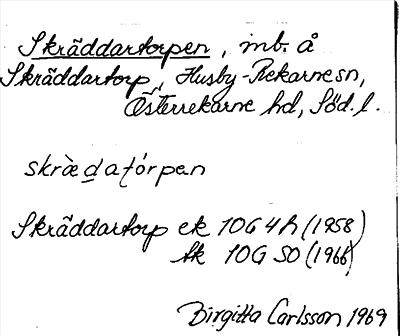 Skräddartorpen, inb. å
Skräddartorp, Husby-Rekarne sn,
Österrekarne hd, Söd. l.
skræ̀da̲ṭórpen
Skräddartorp ek 10G 4h (1958)
tk 10G SO (1966)
Birgitta Carlsson 1969